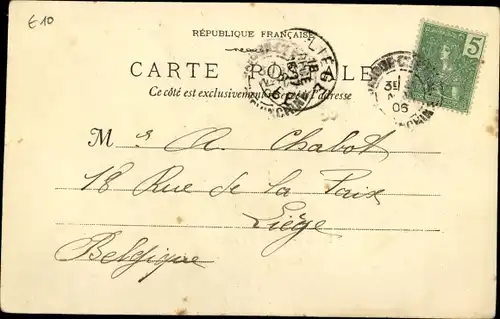 €10
RÉPUBLIQUE FRANÇAISE
5
LIÈGE
CARTE POSTALE
06
Ce côté est exclusivement réservé à l'adresse
M rs A. Chabot
18 Rue de la Paix
Liège
Belgique